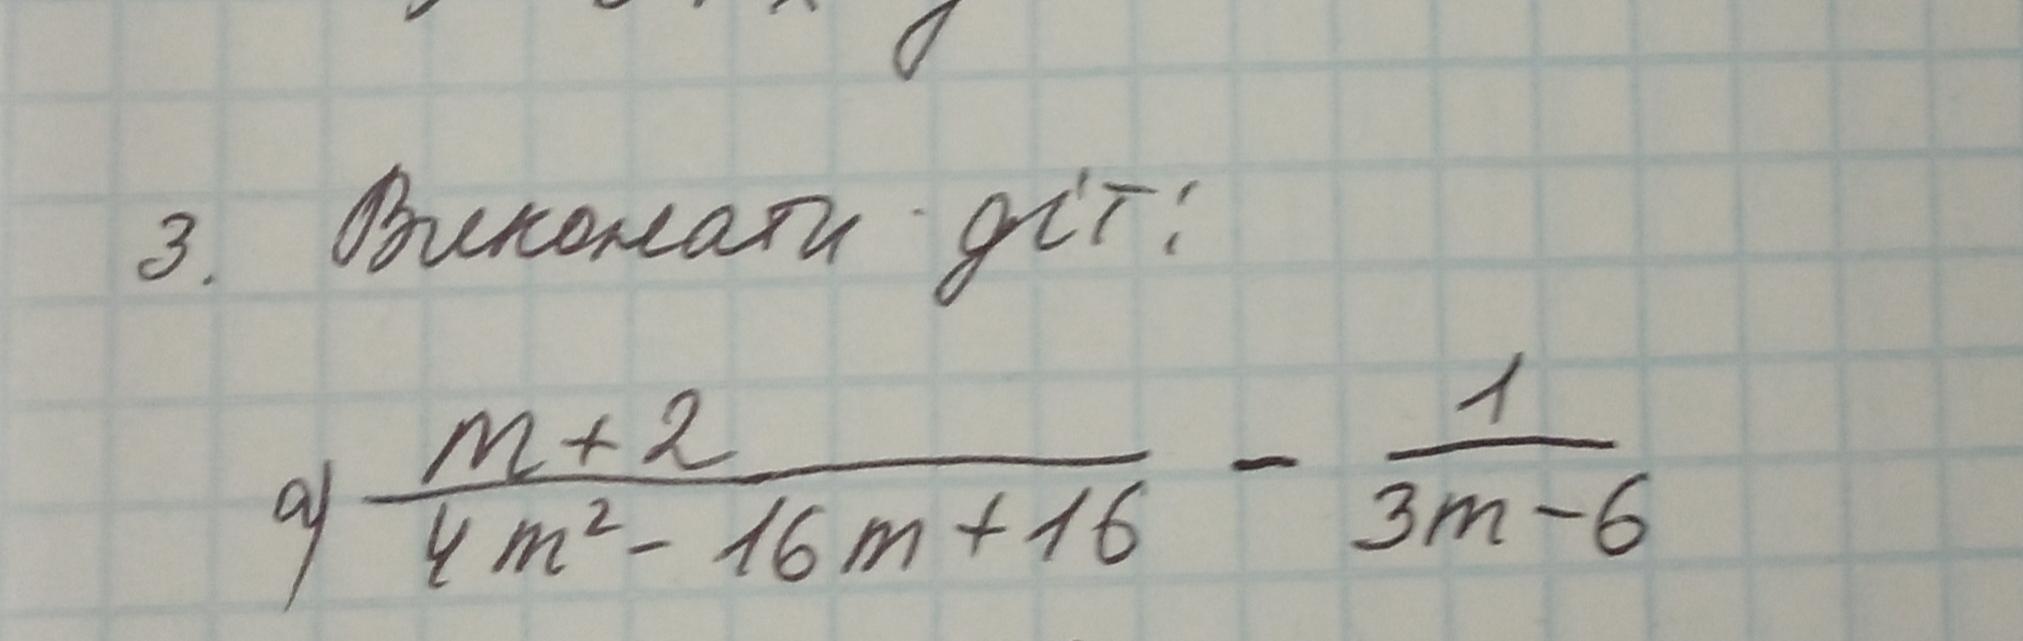 3. Виконати дії:
а) \frac{m+2}{4m^2-16m+16} - \frac{1}{3m-6}